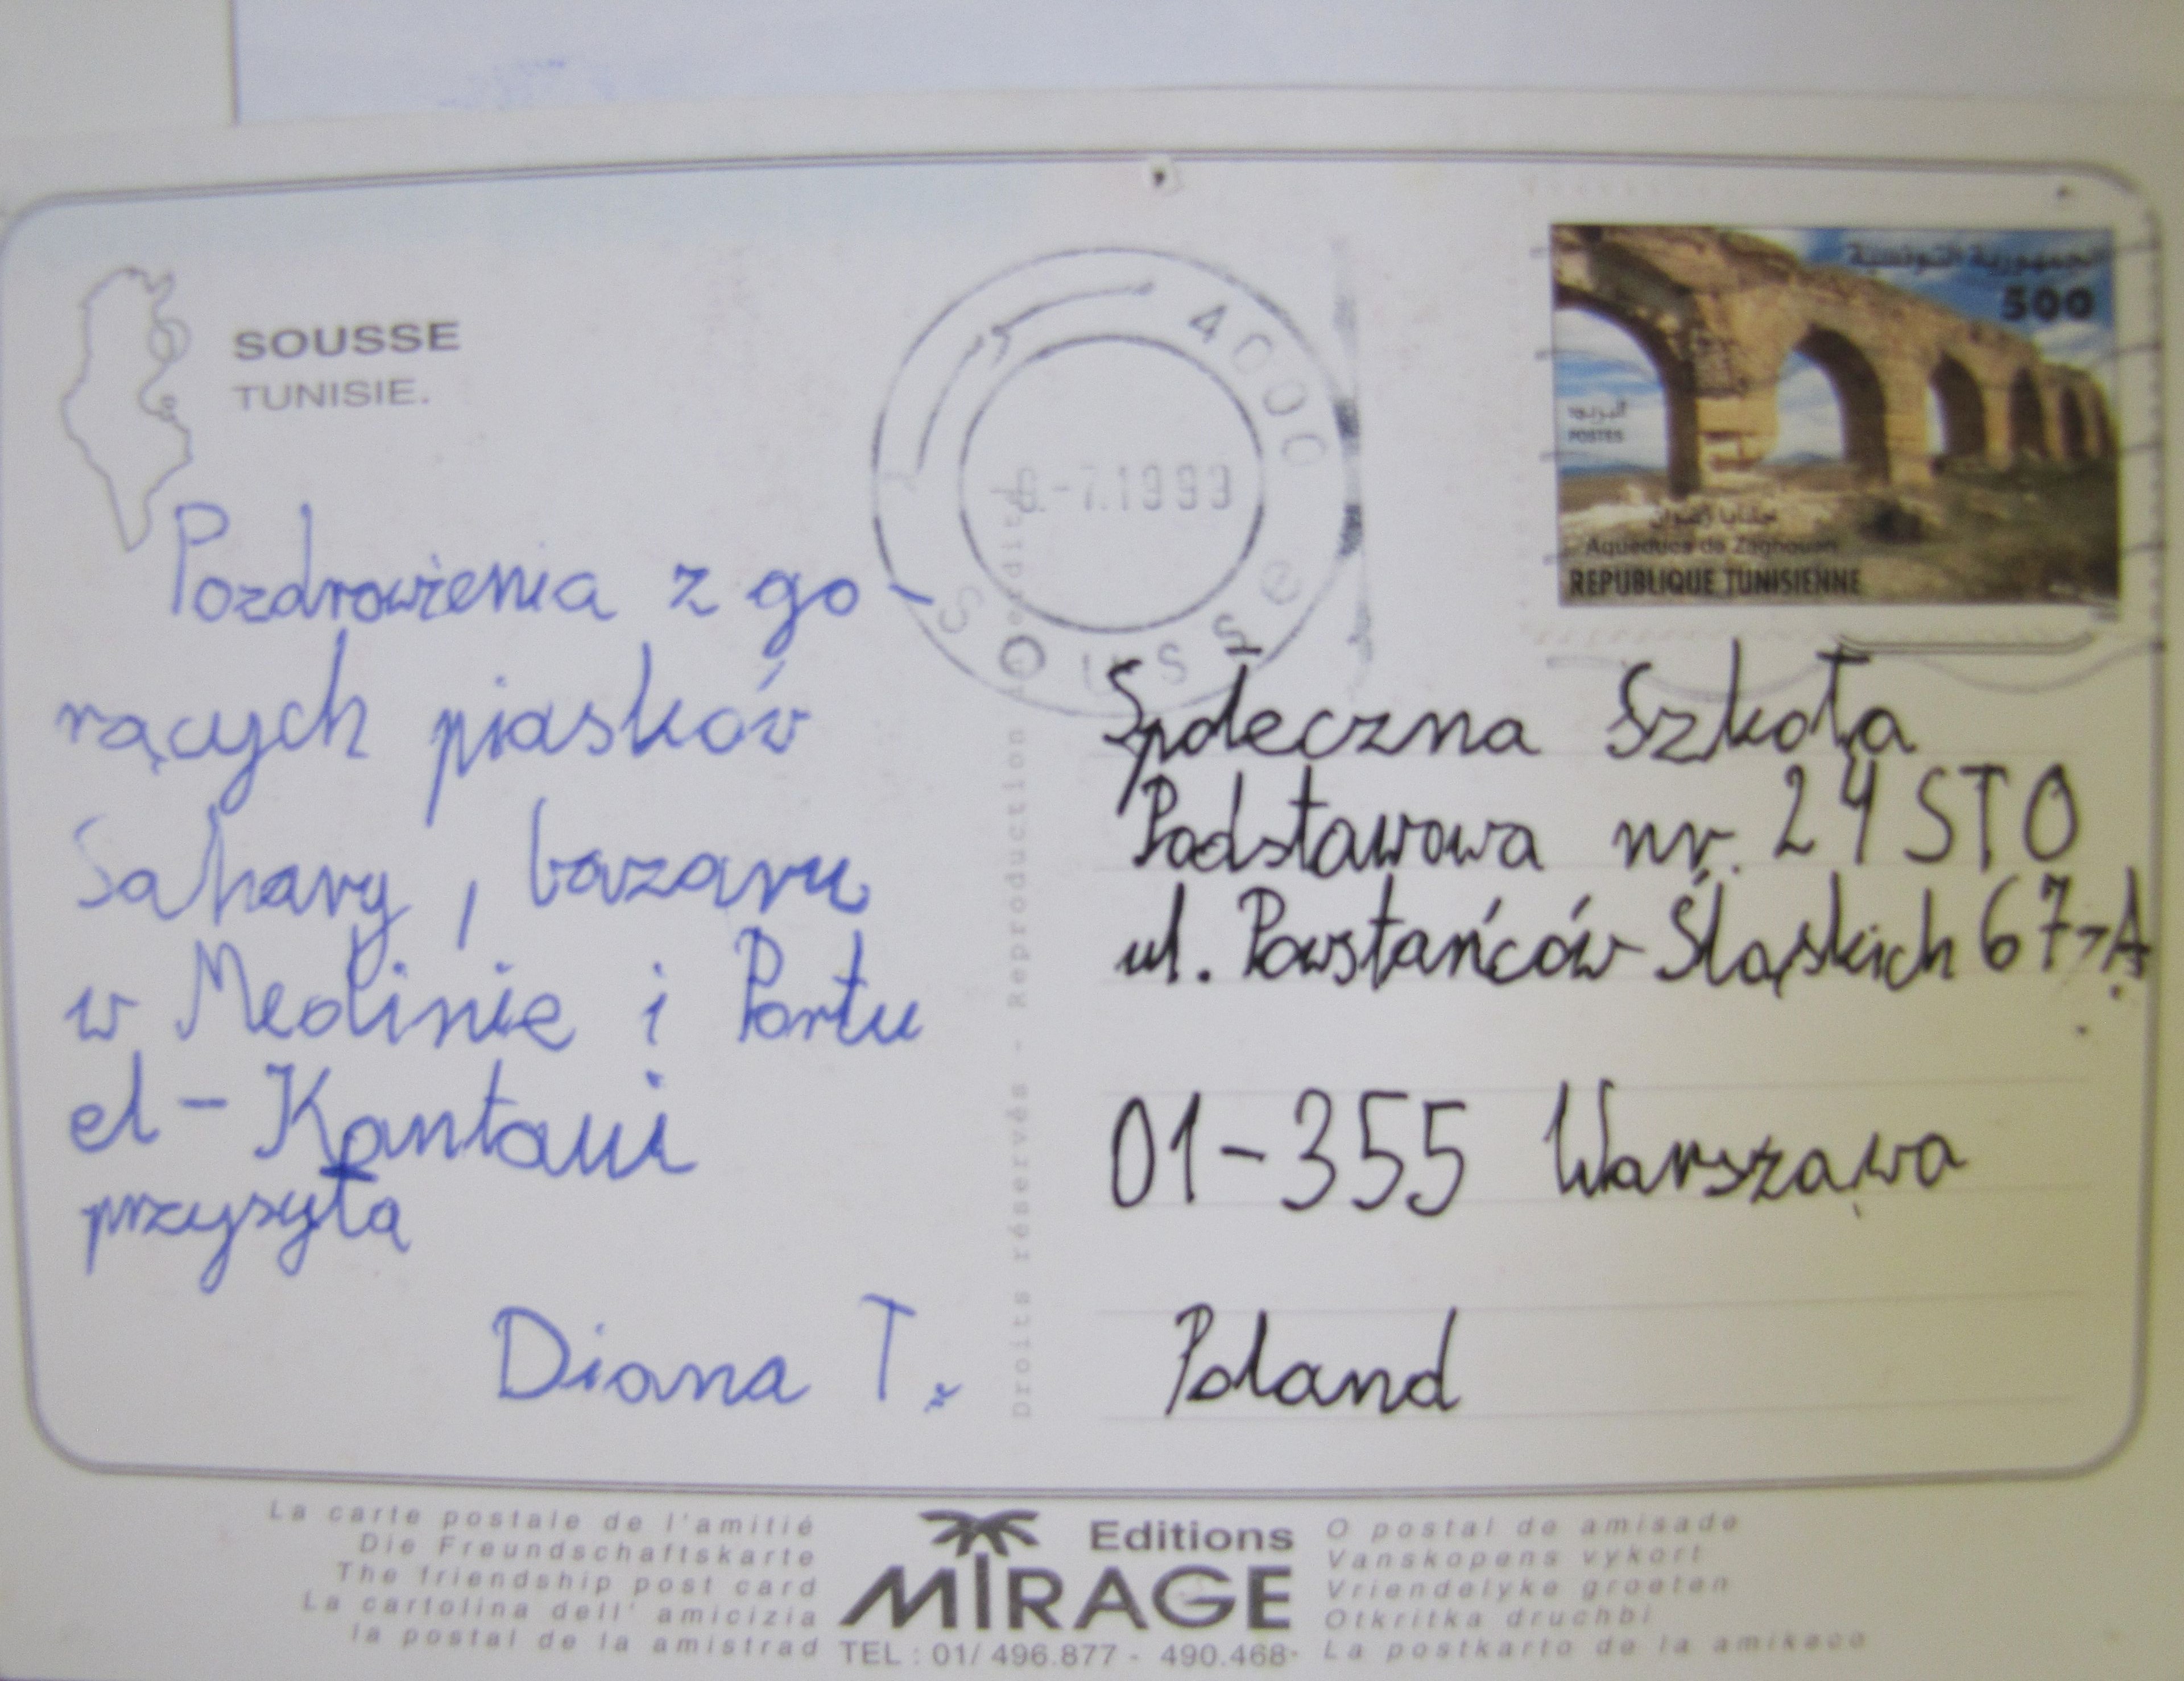 SOUSSE
TUNISIE.
4000
8-7.1999
Sousse
الجمهورية التونسية
500
البريد
POSTES
حنايا زغوان
Aqueducs de Zaghouan
REPUBLIQUE TUNISIENNE
Pozdrowienia z go-
rących piasków
Sahary, bazaru
w Medinie i Portu
el-Kantaui
przysyła
Diana T.
Droits réservés - Reproduction Interdite
Społeczna Szkoła
Podstawowa nr. 24 STO
ul. Powstańców Śląskich 67-A
01-355 Warszawa
Poland
La carte postale de l'amitié
Die Freundschaftskarte
The friendship post card
La cartolina dell' amicizia
la postal de la amistrad
Editions
MIRAGE
TEL : 01/ 496.877 - 490.468
O postal de amisade
Vanskapens vykort
Vriendelyke groeten
Otkritka druchbi
La postkarto de la amikeco